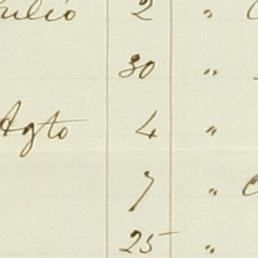 Julio 2 "
30 "
Agto 4 "
7 " C
25 "